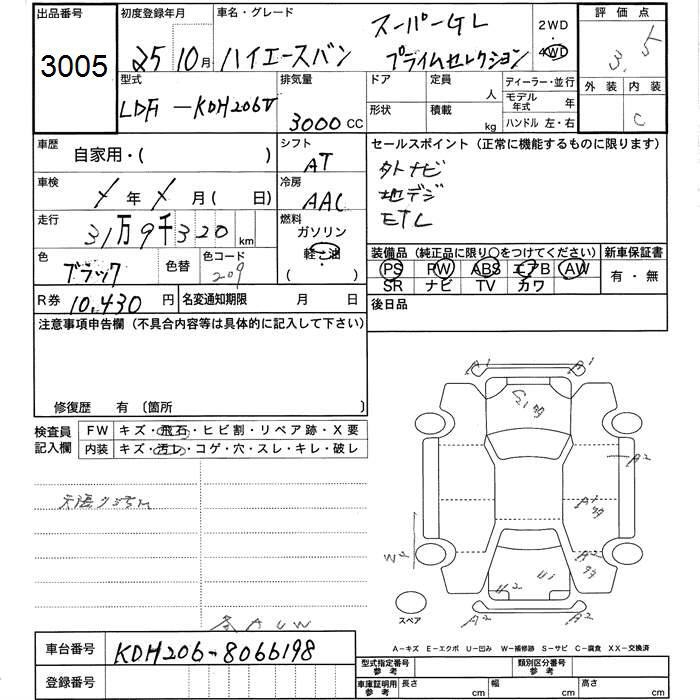 出品番号 初度登録年月 車名・グレード スーパーGL 2WD 評価点
3005 25 10月 ハイエースバン プライムセレクション 4WD 3.5
型式 排気量 ドア 定員 人 ディーラー・並行 外装 内装
LDF-KDH206V 3000CC 形状 積載 kg モデル年式 年 C
ハンドル 左・右
車歴 自家用・( ) シフト AT セールスポイント(正常に機能するものに限ります)
車検 年 月( 日) 冷房 AAC 外ナビ
地デジ
走行 31万9千320km 燃料 ガソリン 軽油 ETC
色 ブラック 色替 色コード 209 装備品(純正品に限り○をつけてください) 新車保証書
PS PW ABS エアB AW 有・無
SR ナビ TV カワ
R券 10,430円 名変通知期限 月 日 後日品
注意事項申告欄(不具合内容等は具体的に記入して下さい)
修復歴 有〔箇所 〕
検査員記入欄 FW キズ・飛石・ヒビ割・リペア跡・X要
内装 キズ・汚レ・コゲ・穴・スレ・キレ・破レ
A1 A1
G21
A2
A1
W2
A2
U2 U1
A2 A2
スペア
AW
A-キズ E-エクボ U-凹み W-補修跡 S-サビ C-腐食 XX-交換済
車台番号 KDH206-8066198 型式指定番号 参考 類別区分番号 参考
登録番号 車庫証明用 参考 長さ cm 幅 cm 高さ cm